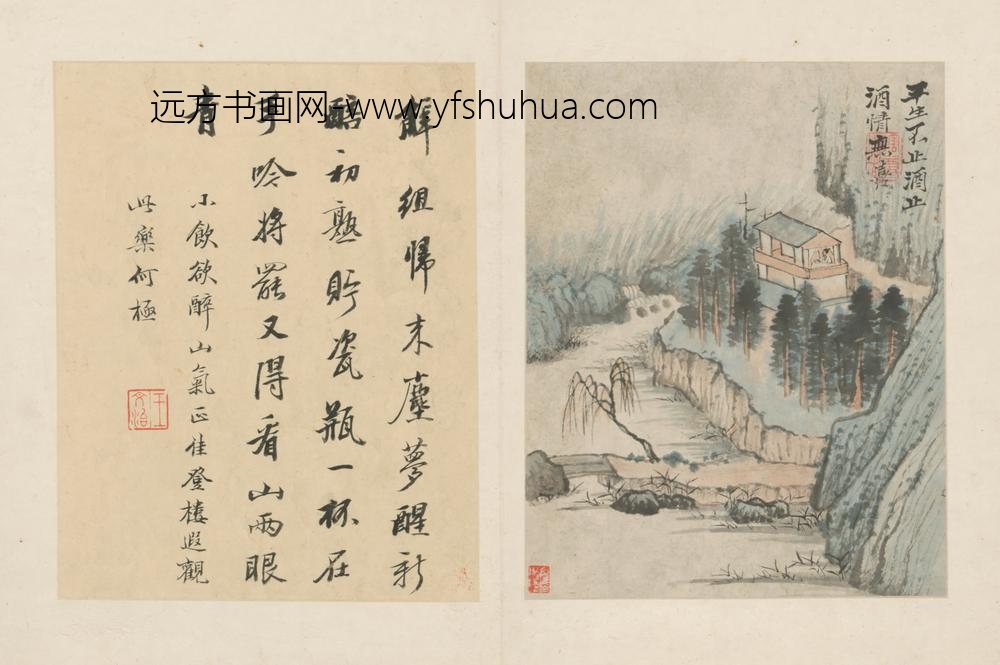 远方书画网-www.yfshuhua.com
平生不止酒止
酒情無喜
解組歸来塵夢醒新
醅初熟貯瓷瓶一杯在
手吟將罷又得看山兩眼
青
小飲欲醉山氣正佳登樓遐觀
此樂何極
王文治